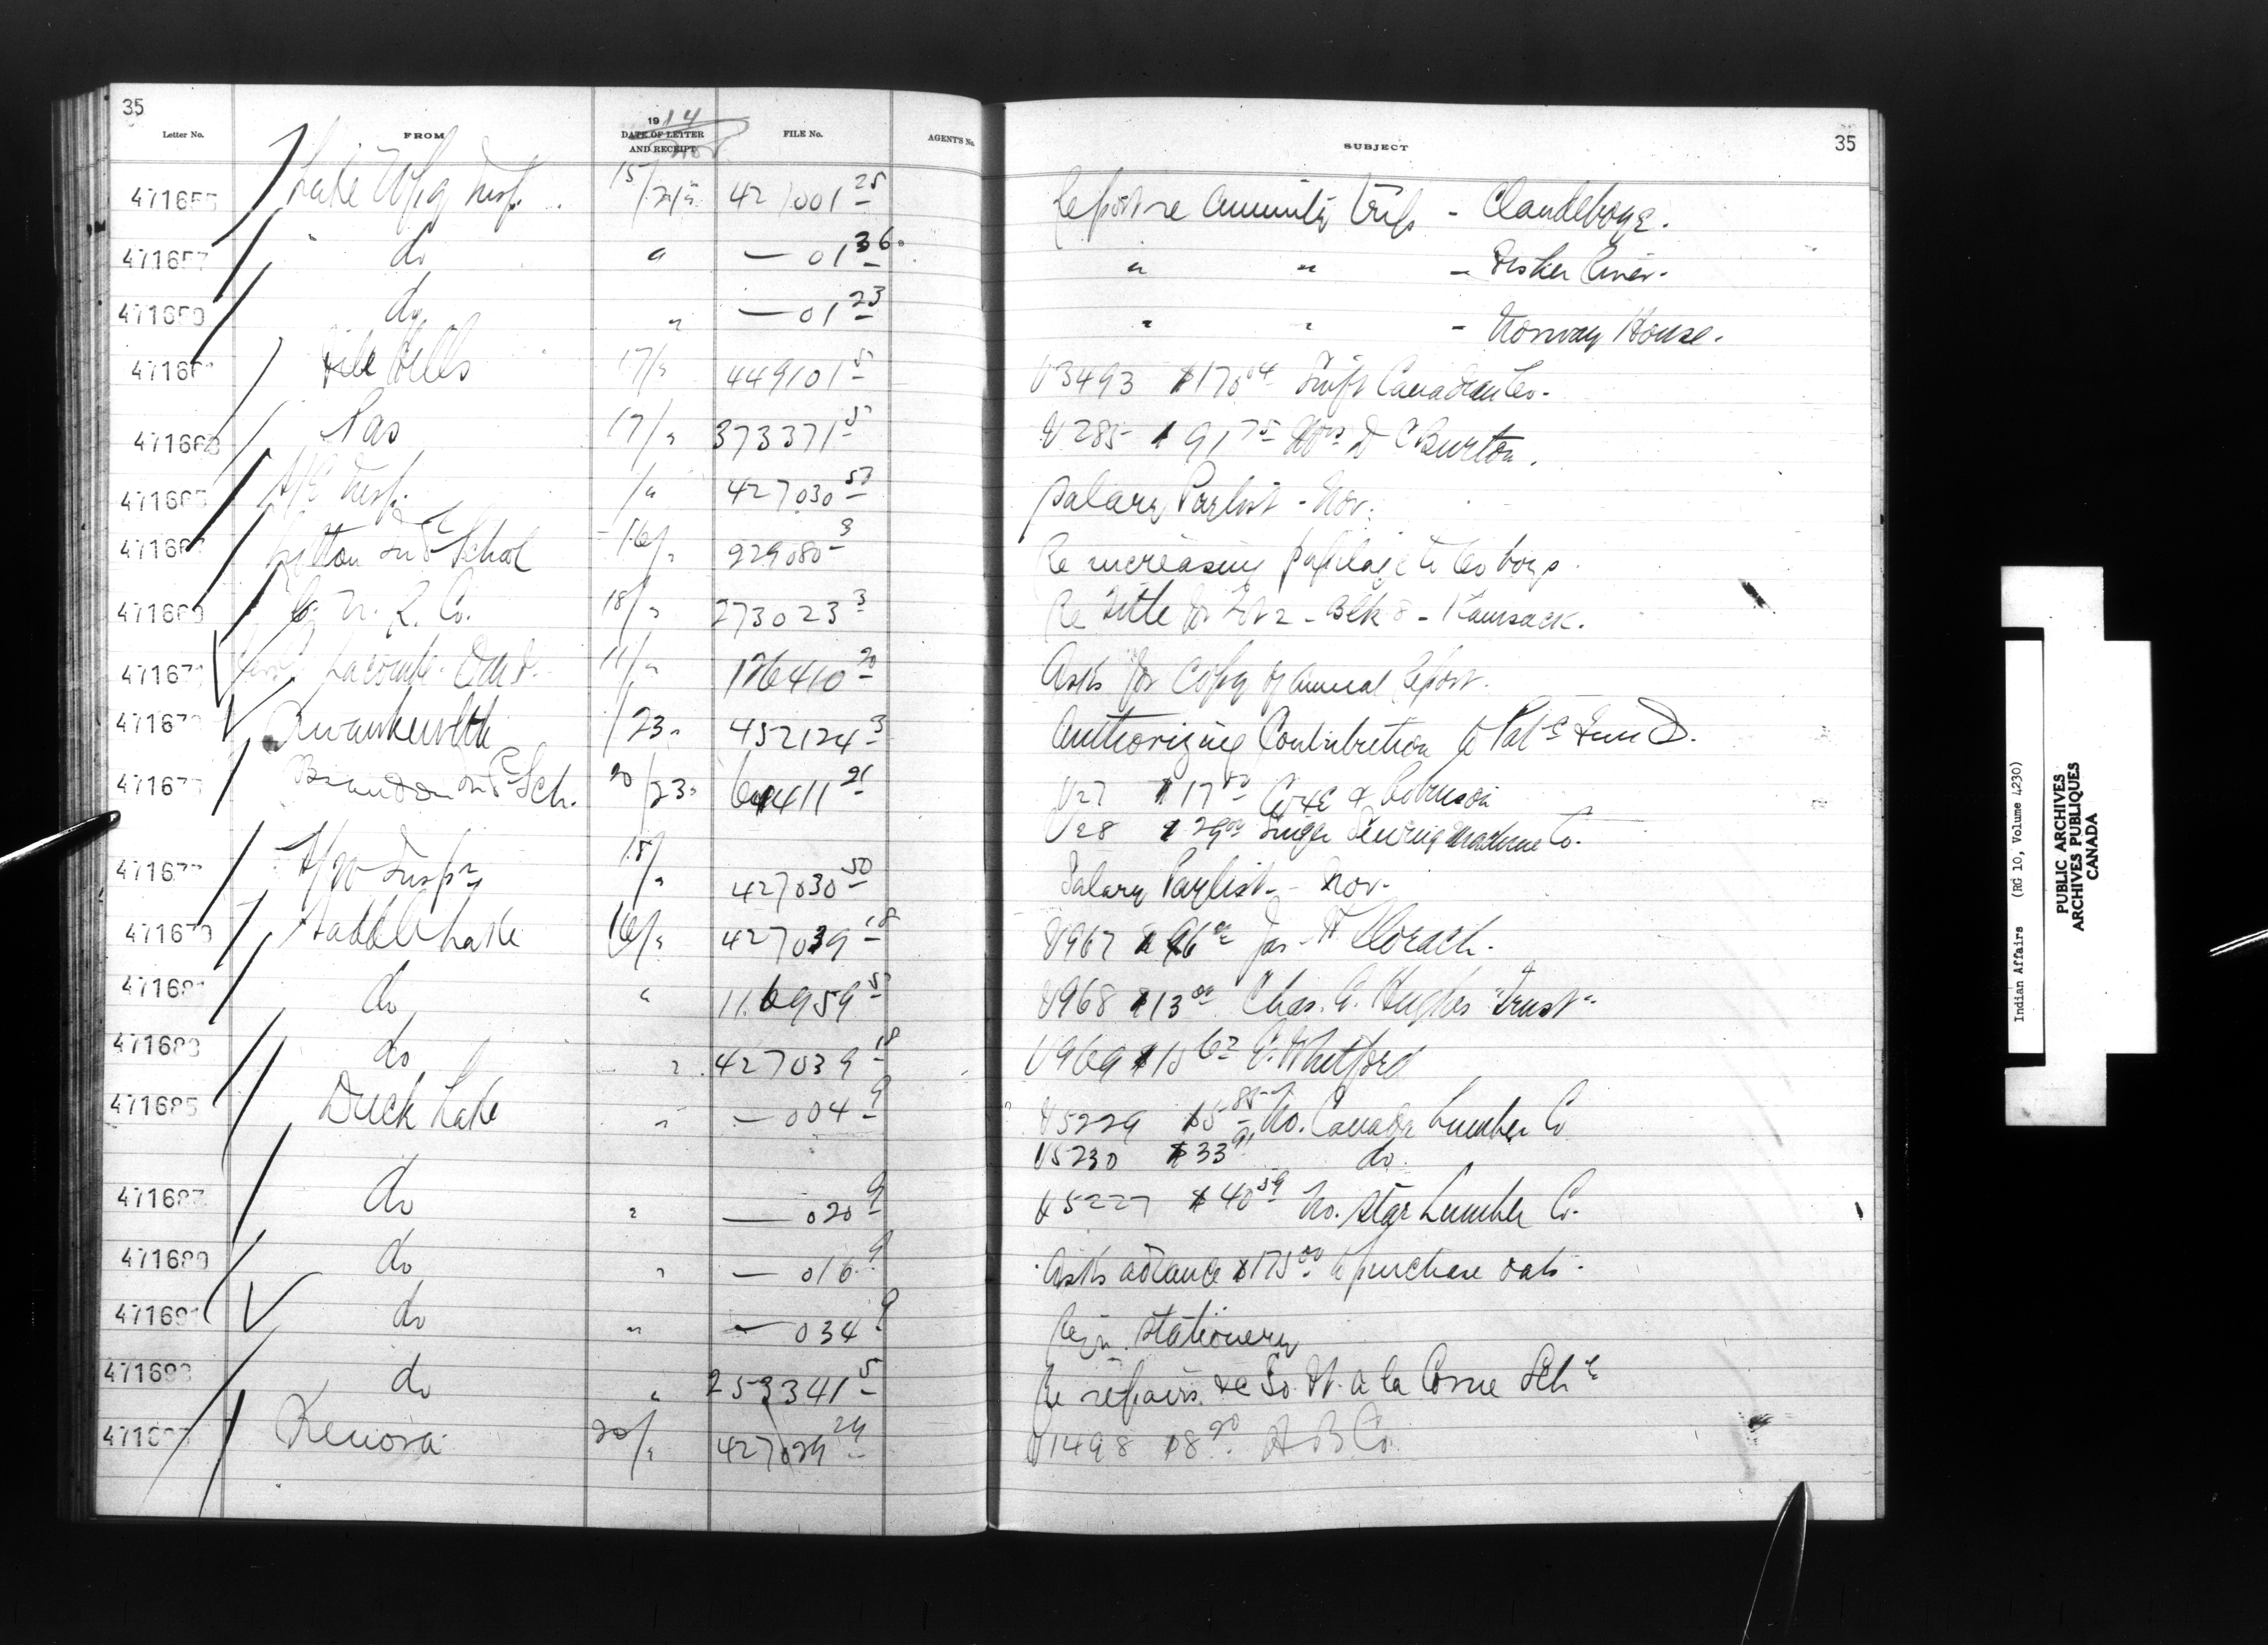 35
Letter No. FROM 1914 DATE OF LETTER AND RECEIPT Nov FILE No. AGENTS No. SUBJECT 35
Lake Wpg Insp. 15/21 427001 25 Report re Annuity trip - Clandeboye.
471657 do " — 01 36 " " - Fisher River.
471659 do " — 01 23 " " - Norway House.
File Hills 17/" 449101 5 V3493 $170 04 Swift Canadian Co.
Pas 17/" 373371 5 V285 $91 75 D C Burton.
Insp. /" 427030 50 Salary Paylist - Nov.
Lytton Ind Schol 16/" 229080 3 Re increasing pupilage to 60 boys.
471669 C. N. R. Co. 18/" 273023 3 Re Title for Lot 2 - Blk 8 - Kamsack.
471671 Lacombe 11/" 176410 20 Asks for copy of annual Report.
Kwawkewlth /23 " 452124 3 Authorizing Contribution to Pat c Fund.
Brandon Ind Sch. 20/23 " 64411 21 V27 $17 50 & Robinson
V28 $29 00 Singer Sewing Machine Co.
471677 Insp 15/" 427030 50 Salary Paylist - Nov.
471679 Saddle Lake 16/" 427039 18 V967 Jas. H
471681 do " 116959 5 V968 $13 00 Chas. G. Hughes "Trust"
471683 do " 427039 18 V969 $15 62 E. Whitford
471685 Duck Lake " — 004 9 V5229 $5 85 No. Canada Lumber Co
V5230 $33 91 do.
471687 do " — 020 9 V5227 $40 59 No. Star Lumber Co.
471689 do " — 016 9 Asks advance $175 00 to purchase oats.
471691 do " — 034 9 Reqn. Stationery
471693 do " 253341 5 Re repairs &c So. Ft. a la Corne Sch
Kenora 20/" 427029 24 V1498 $8 20 H B Co.
Indian Affairs (RG 10, Volume 4230)
PUBLIC ARCHIVES
ARCHIVES PUBLIQUES
CANADA